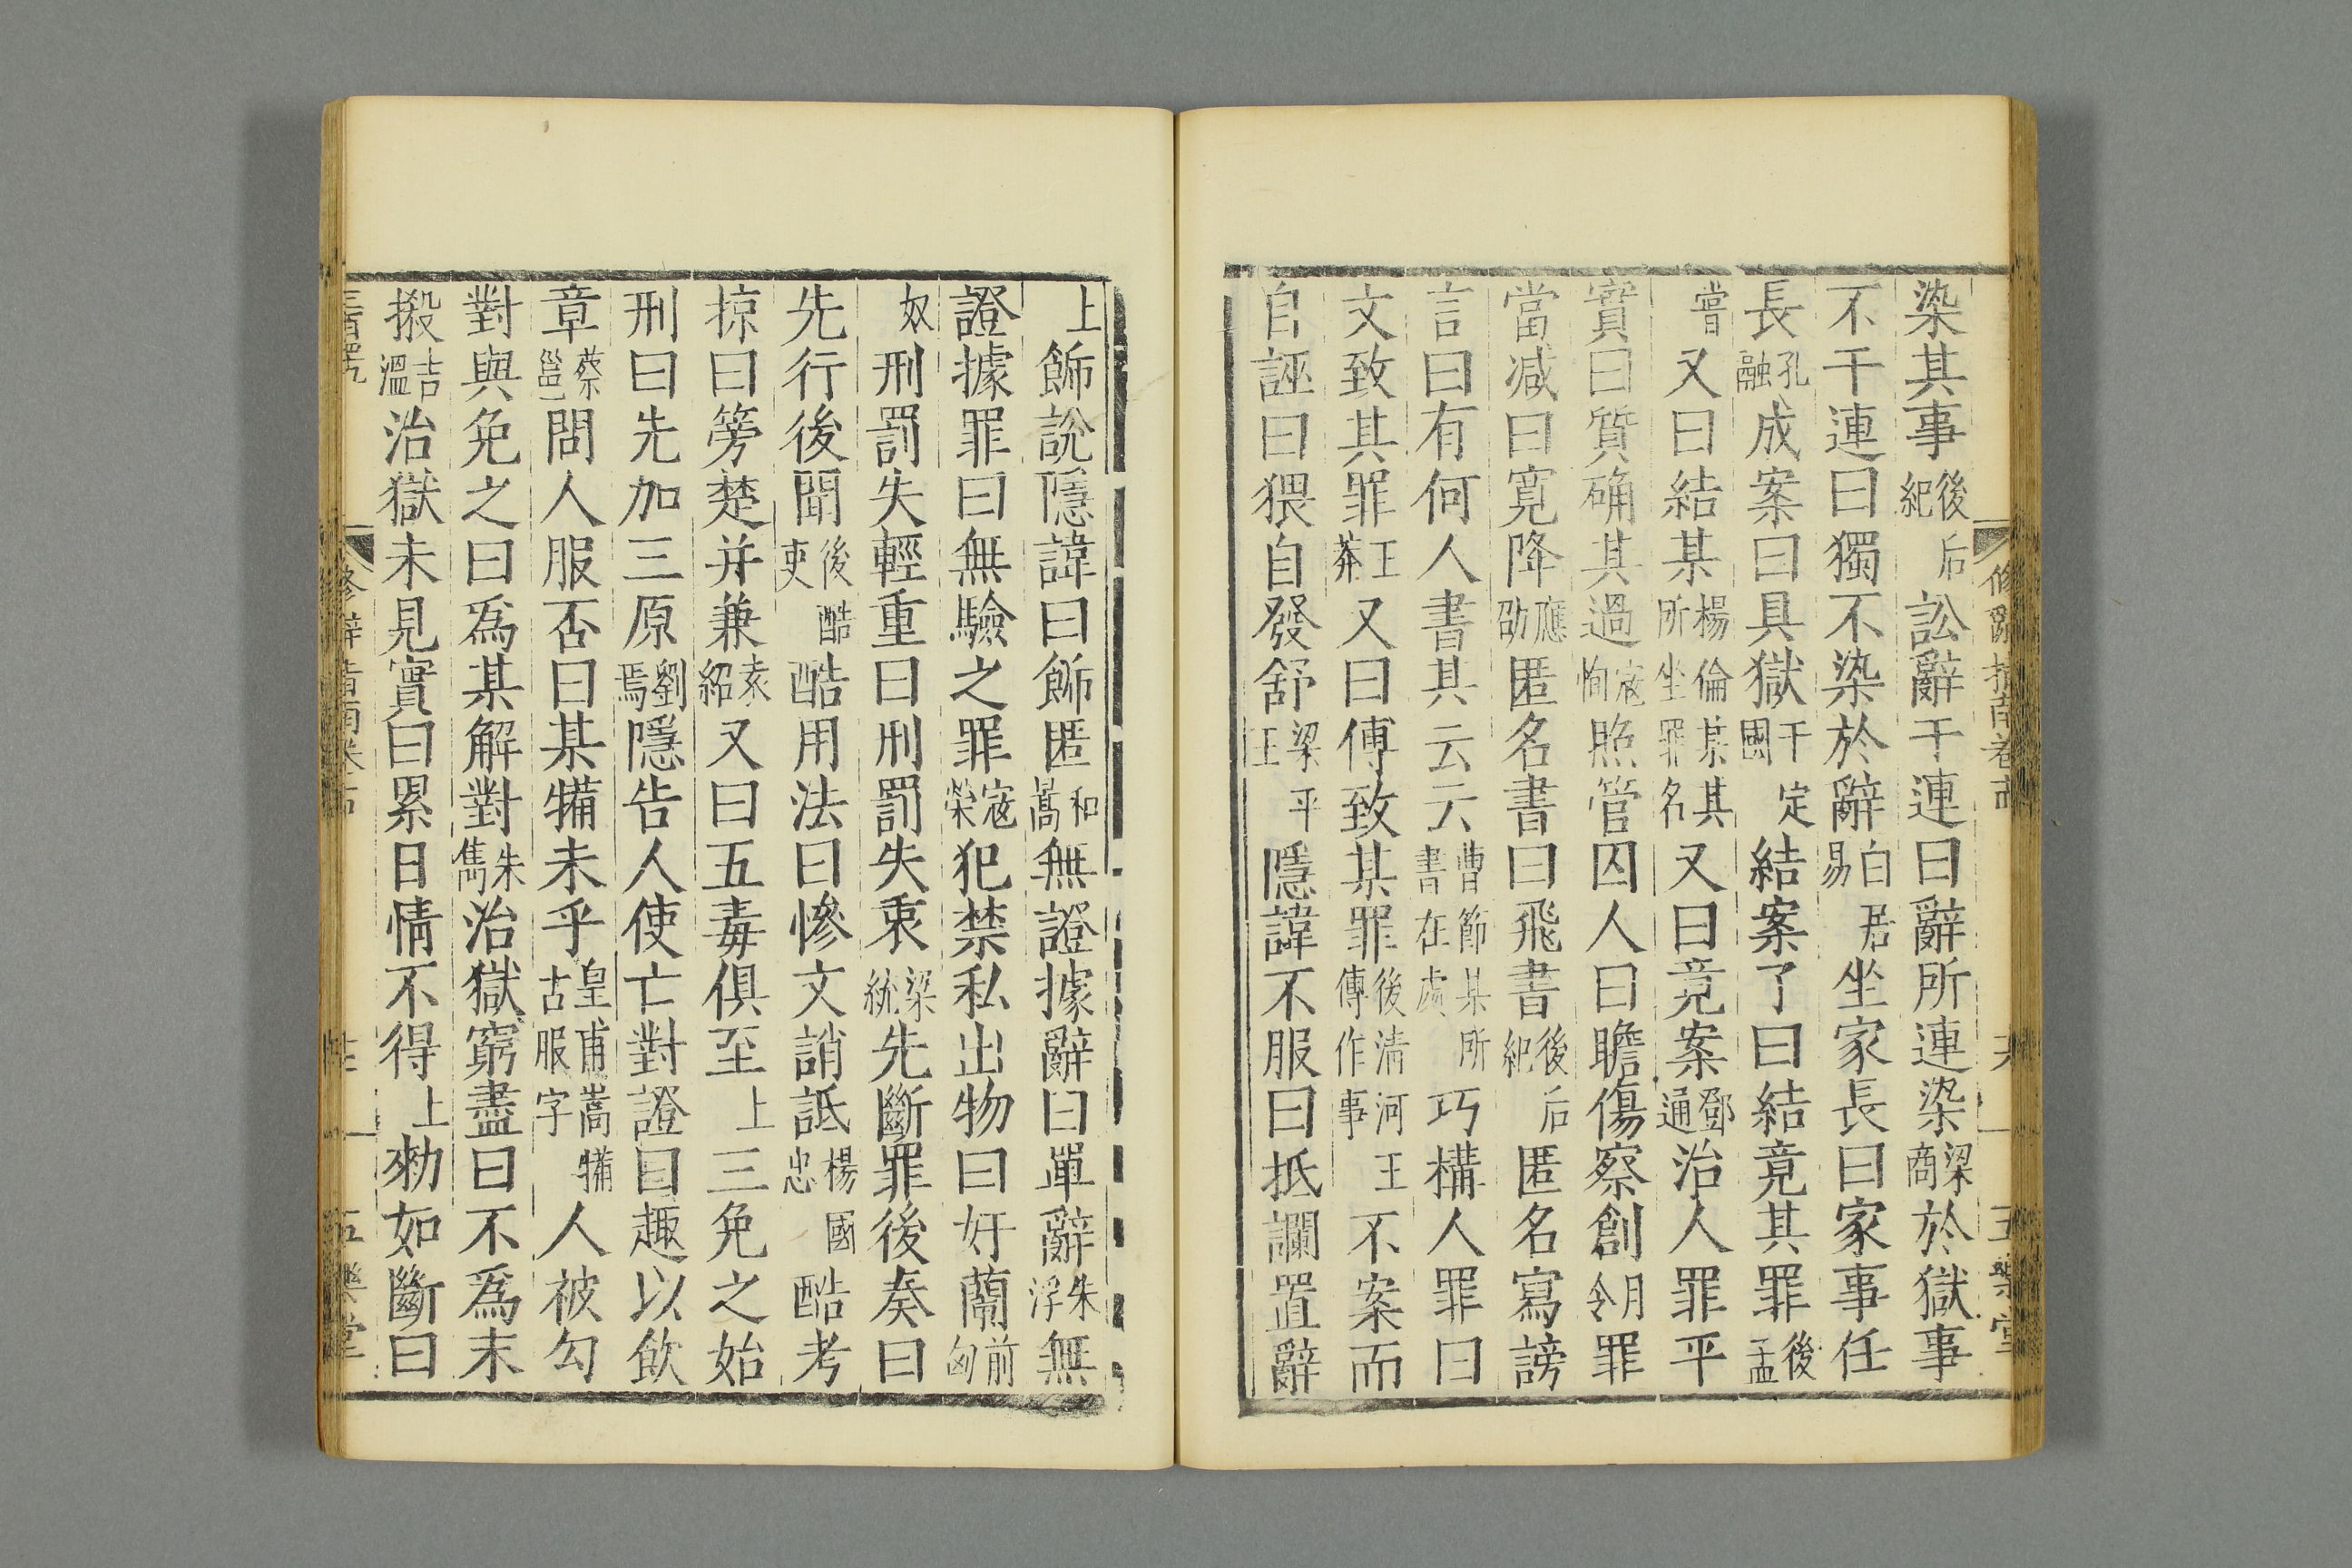 染其事後紀后訟辭干連曰辭所連染梁商於獄事
不干連曰獨不染於辭白居易坐家長曰家事任
長孔融成案曰具獄于定國結案了曰結竟其罪後孟
嘗又曰結某楊倫某其所坐罪名又曰竟案鄧通治人罪平
實曰質确其過寇恂照管囚人曰瞻傷察創月令罪
當減曰寬降應劭匿名書曰飛書後后紀匿名寫謗
言曰有何人書其云云曹節某所書在處巧構人罪曰
文致其罪王莽又曰傅致某罪後清河王傳作事不案而
自誣曰猥自發舒梁平王隱諱不服曰抵讕置辭
修辭指南卷
五樂堂
上飾說隱諱曰飾匿和嵩無證據辭曰單辭朱浮無
證據罪曰無驗之罪寇榮犯禁私出物曰奸蘭前匈
奴刑罰失輕重曰刑罰失衷梁統先斷罪後奏曰
先行後聞後酷吏酷用法曰慘文誚詆楊國忠酷考
掠曰篣楚并兼袁紹又曰五毒俱至上三免之始
刑曰先加三原劉焉隱告人使亡對證曰趣以飲
章蔡邕問人服否曰某犕未乎皇甫嵩犕古服字人被勾
對與免之曰為某解對朱雋治獄窮盡曰不為末
搬吉溫治獄未見實曰累日情不得上勑如斷曰